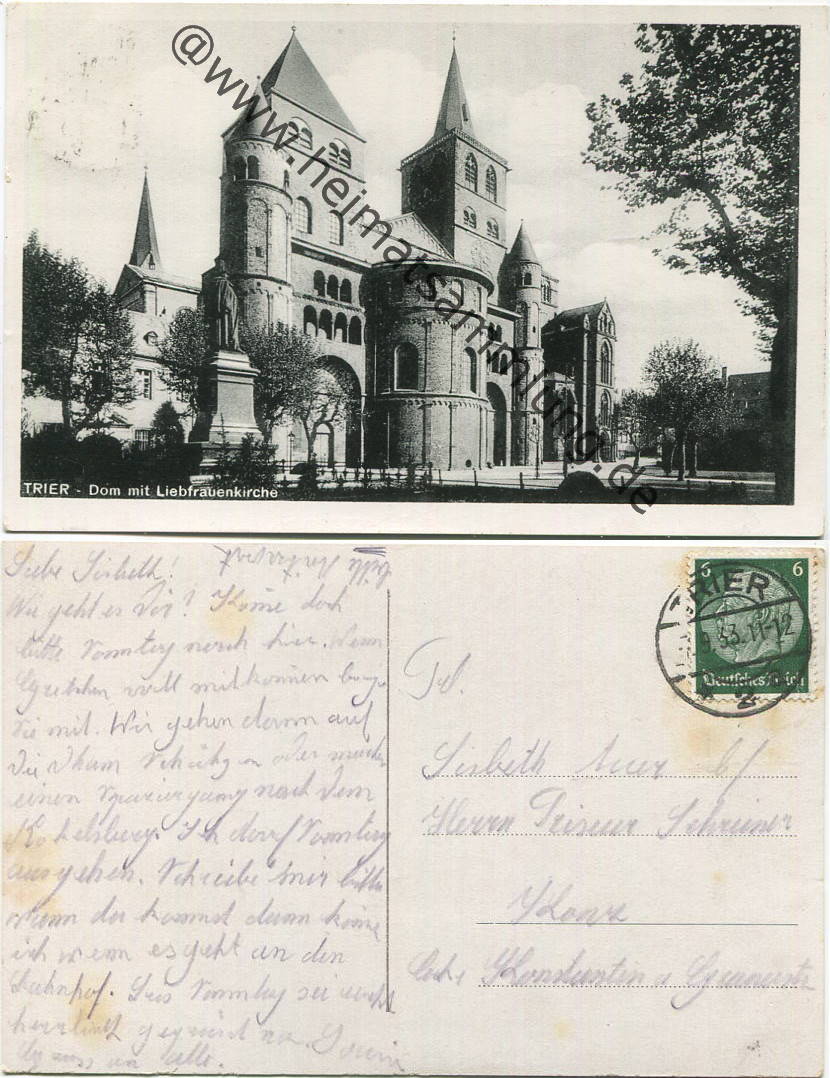 @www.heimatsammlung.de
TRIER - Dom mit Liebfrauenkirche
Liebe Lisbeth!
Wie geht es Dir? Kome doch
bitte Sonntag nach hier. Wenn
Gretchen will mitkommen bringe
sie mit. Wir gehen dann auf
die
einen Spaziergang nach dem
Kockelsberg. Ich darf Sonntag
ausgehen. Schreibe mir bitte
wann du kommst dann kome
ich wenn es geht an den
Bahnhof. Bis Sonntag sei recht
herzlich gegrüßt von
Gruss an alle.
6 6
TRIER
9.33.11-12
2
Deutsches Reich
Lisbeth Auer b/
Herrn Friseur Schreiner
Konz
Ecke Konstantin u